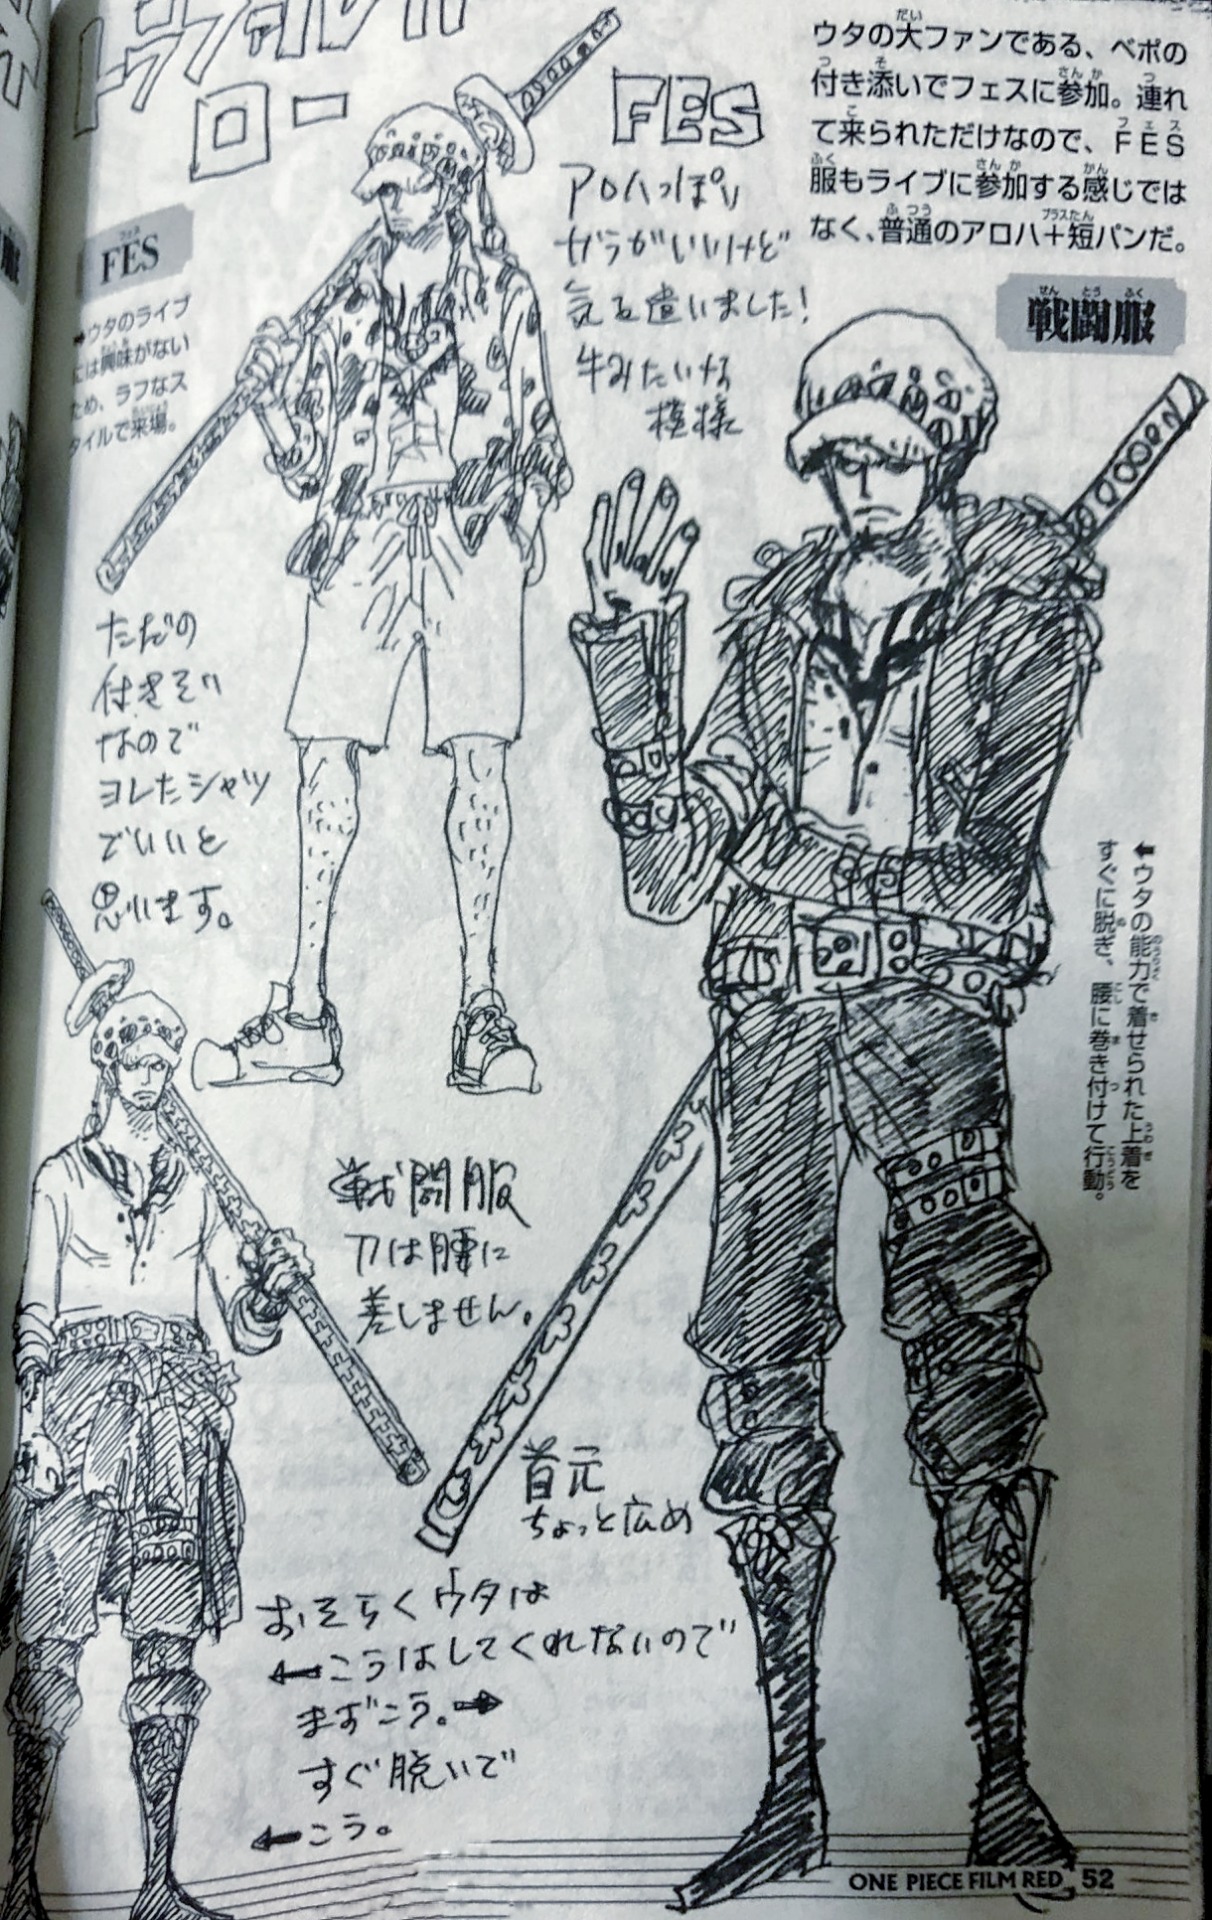 トラファルガー
ロー
FES
ウタの大ファンである、ベポの
付き添いでフェスに参加。連れ
て来られただけなので、FES
服もライブに参加する感じでは
なく、普通のアロハ+短パンだ。
アロハっぽい
ガラがいいけど
気を遣いました!
牛みたいな
模様
FES
ウタのライブ
には興味がない
ため、ラフなス
タイルで来場。
ただの
付きそい
なので
ヨレたシャツ
でいいと
思います。
戦闘服
←ウタの能力で着せられた上着を
すぐに脱ぎ、腰に巻き付けて行動。
戦闘服
刀は腰に
差しません。
首元
ちょっと広め
おそらくウタは
←こうはしてくれないので
まずこう。→
すぐ脱いで
←こう。
ONE PIECE FILM RED 52